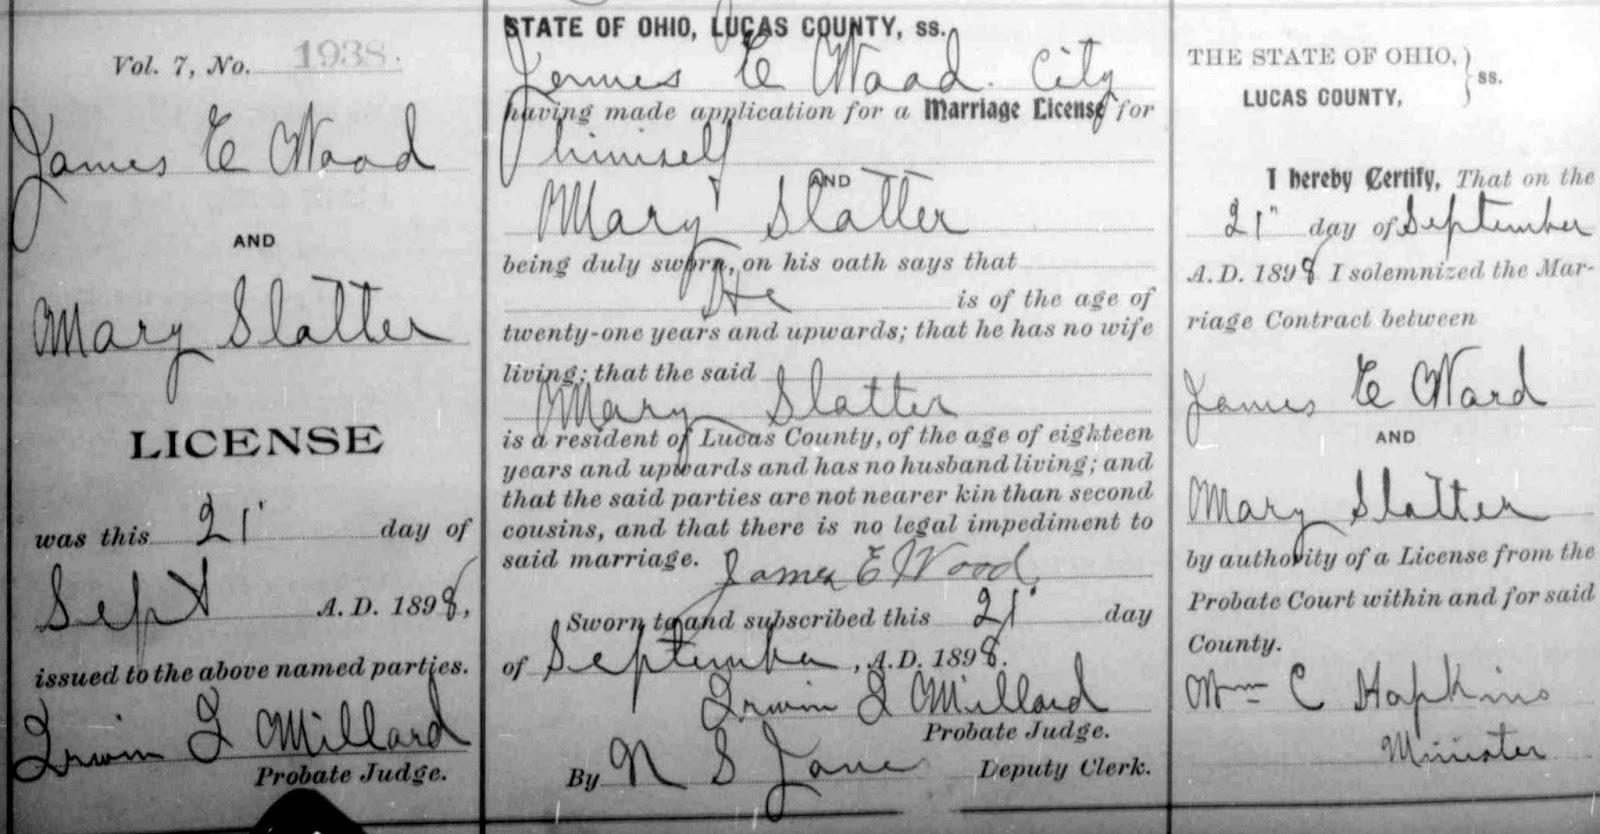 Vol. 7, No. 1938.
James E Wood
AND
Mary Slatter
LICENSE
was this 21" day of
Sept A. D. 1898,
issued to the above named parties.
Irwin I Millard
Probate Judge.
STATE OF OHIO, LUCAS COUNTY, ss.
James E Wood. City
having made application for a Marriage License for
himself
AND
Mary Slatter
being duly sworn, on his oath says that
He is of the age of
twenty-one years and upwards; that he has no wife
living; that the said
Mary Slatter
is a resident of Lucas County, of the age of eighteen
years and upwards and has no husband living; and
that the said parties are not nearer kin than second
cousins, and that there is no legal impediment to
said marriage. James E Wood.
Sworn to and subscribed this 21" day
of September, A. D. 1898.
Irwin I Millard
Probate Judge.
By N S Jane Deputy Clerk.
THE STATE OF OHIO, } ss.
LUCAS COUNTY,
I hereby Certify, That on the
21" day of September
A. D. 1898 I solemnized the Mar-
riage Contract between
James E Ward
AND
Mary Slatter
by authority of a License from the
Probate Court within and for said
County.
Wm C Hopkins
Minister